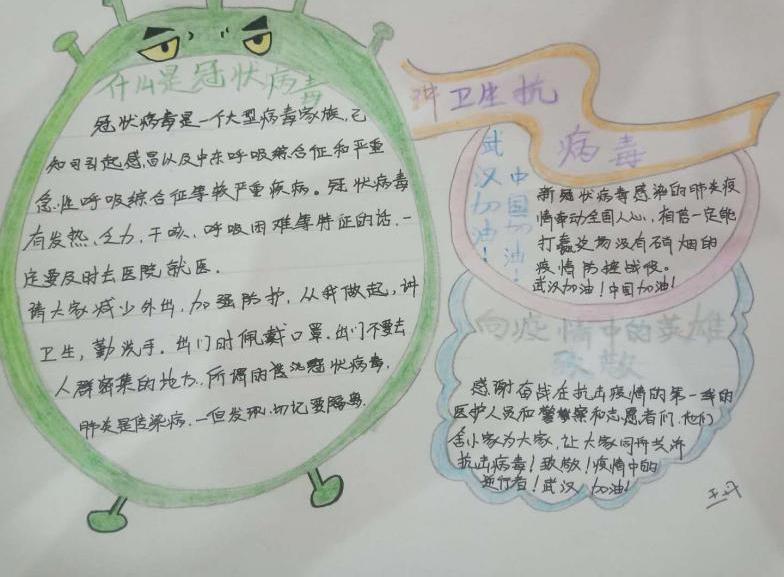 什么是冠状病毒
冠状病毒是一个大型病毒家族,已
知可引起感冒以及中东呼吸综合征和严重
急性呼吸综合征等较严重疾病。冠状病毒
有发热、乏力、干咳、呼吸困难等特征的话,一
定要及时去医院就医。
请大家减少外出,加强防护,从我做起,讲
卫生,勤洗手。出门时佩戴口罩,出门不要去
人群密集的地方,所谓的
冠状病毒,
肺炎是传染病,一但发现,切记要
讲卫生抗
病毒
武汉加油!
中国加油!
新冠状病毒感染的肺炎疫
情牵动全国人心,相信一定能
打赢这场没有硝烟的
疫情防控战役。
武汉加油!中国加油!
向疫情中的英雄
致敬
感谢奋战在抗击疫情的第一线的
医护人员和警察和志愿者们,他们
舍小家为大家,让大家同舟共济
抗击病毒!致敬!疫情中的
逆行者!武汉加油!
王丹